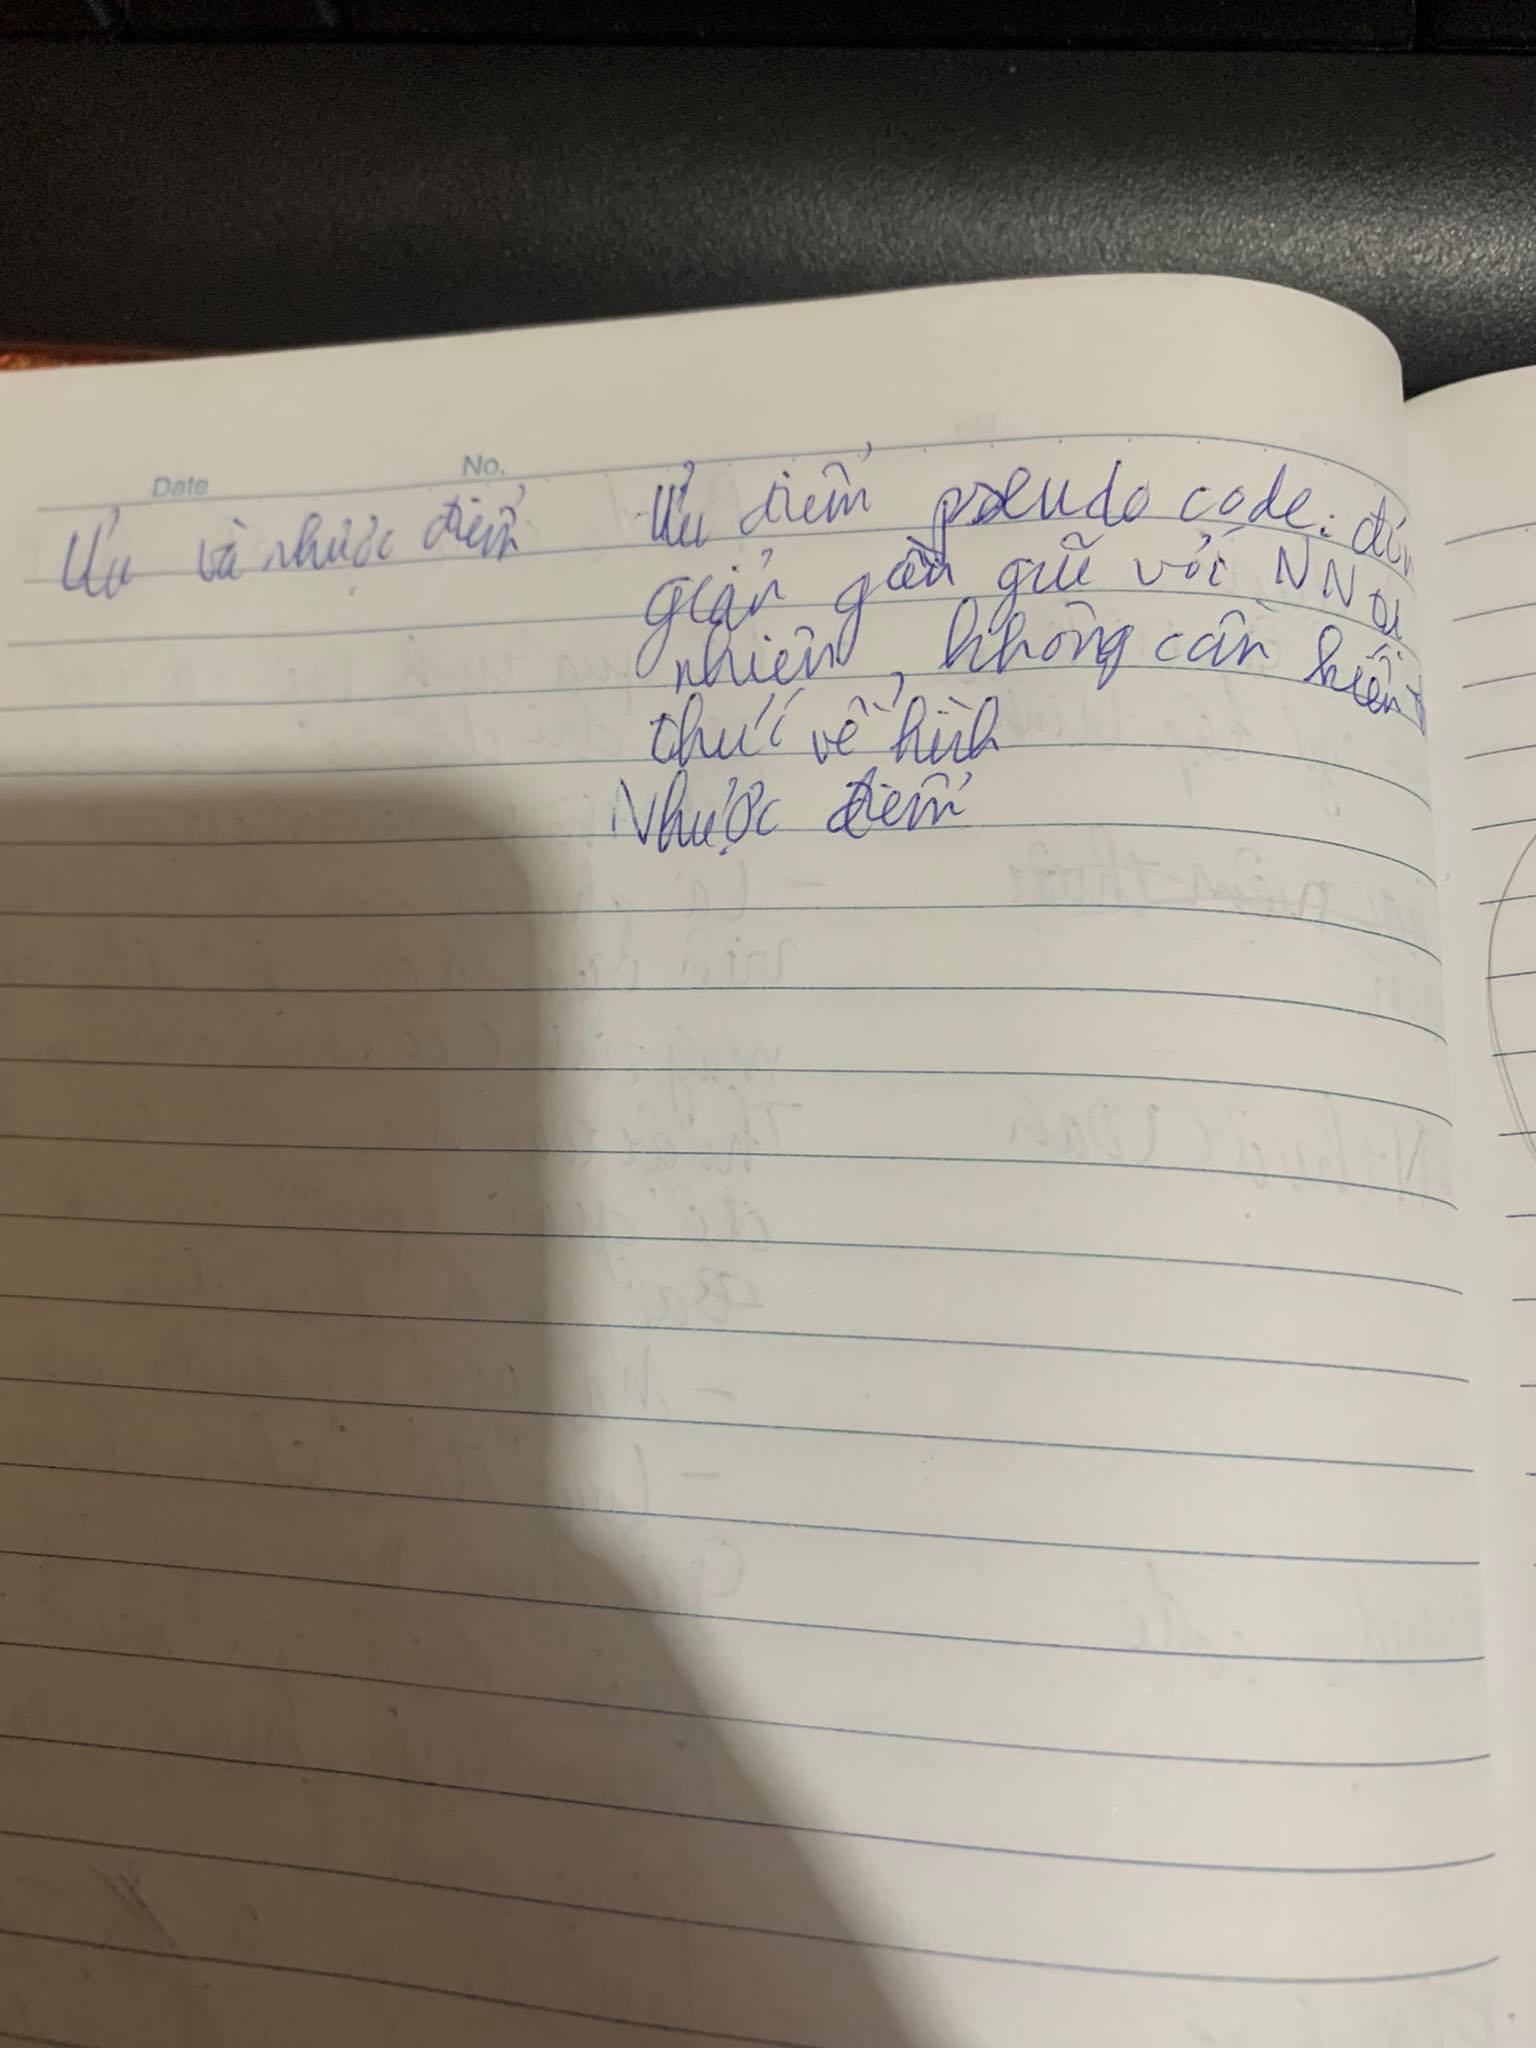 Date No.
Ưu và nhược điểm
Ưu điểm pseudo code: đơn
giản gần gũi với NN tự
nhiên, không cần kiến
thức về hình
Nhược điểm